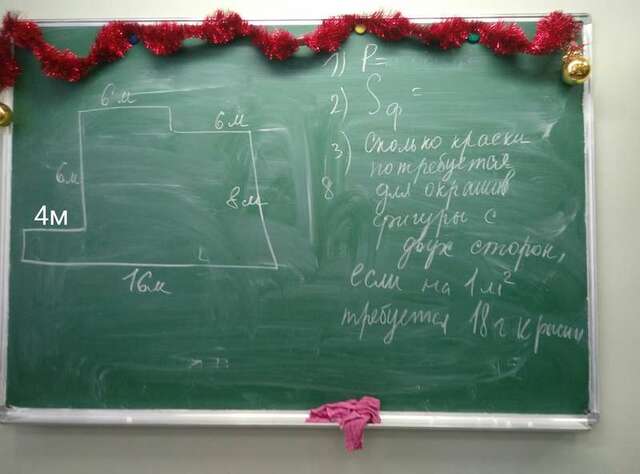 6м
6м
6м
8м
4м
16м
1) P=
2) Sф =
3) Сколько краски
потребуется
для окрашив
фигуры с
двух сторон,
если на 1м²
требуется 18г краски